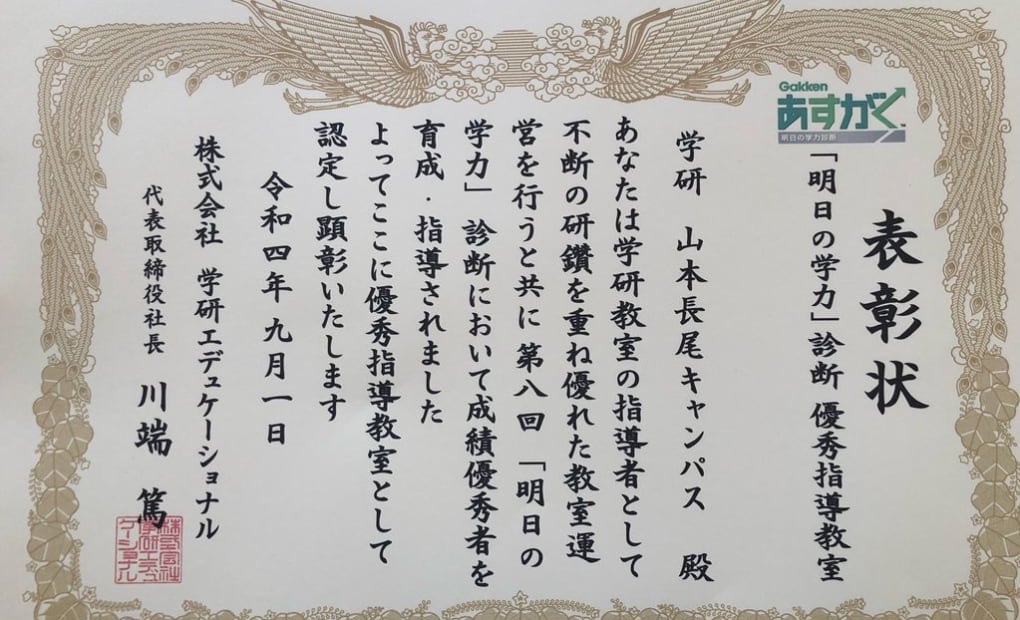 表彰状
Gakken
あすがく
明日の学力診断
「明日の学力」診断 優秀指導教室
学研 山本長尾キャンパス 殿
あなたは学研教室の指導者として
不断の研鑽を重ね優れた教室運
営を行うと共に第八回「明日の
学力」診断において成績優秀者を
育成・指導されました
よってここに優秀指導教室として
認定し顕彰いたします
令和四年九月一日
株式会社 学研エデュケーショナル
代表取締役社長 川端 篤
株式会社
学研エデュ
ケーショナル